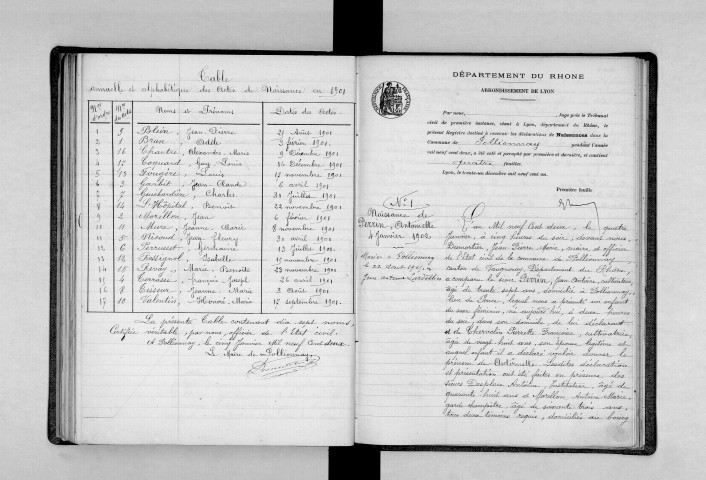 Table
annuelle et alphabétique des Actes de Naissance en 1901
Nos d'ordre Nos des Actes Noms et Prénoms Dates des Actes
1 3 Jean Pierre 21 Août 1901
2 1 Brun, Odile 3 février 1901
3 16 Chantre, Alexandre Marie 9 Décembre 1901
4 17 Coquard, Guy Louis 14 Décembre 1901
5 13 Fougère, Louis 17 novembre 1901
6 3 Jean Claude 6 avril 1901
7 7 Charles 31 Juillet 1901
8 14 L'Hôpital, Benoît 22 novembre 1901
9 2 Morellon, Jean 6 février 1901
10 11 Mure, Jeanne Marie 8 novembre 1901
11 5 Jean Fleury 30 avril 1901
12 6 13 Juillet 1901
13 12 Isabelle 15 novembre 1901
14 15 Marie Benoîte 23 novembre 1901
15 4 Terrasse, François Joseph 26 avril 1901
16 8 Jeanne Marie 3 Août 1901
17 10 Valentin, Marie 17 septembre 1901
La présente Table contenant dix sept noms,
Certifiée véritable, par nous, officier de l'Etat civil.
A Pollionnay, le cinq Janvier mil neuf Cent deux.
Le Maire de Pollionnay
DÉPARTEMENT DU RHONE
ARRONDISSEMENT DE LYON
Par nous, Juge près le Tribunal
civil de première instance, séant à Lyon, département du Rhône, le
présent Registre destiné à recevoir les déclarations de Naissances dans la
Commune de Pollionnay pendant l'année
mil neuf cent deux, a été coté et paraphé par première et dernière, et contient
feuilles.
Lyon, le trente-un décembre mil neuf cent un.
Première feuille
N° 1
Naissance de
Perrin, Antoinette
4 Janvier 1902
Mariée à Pollionnay
le 22 Août 1925
L'an mil neuf Cent deux, le quatre
Janvier, à cinq heures du soir, devant nous,
Jean Pierre Marie, maire, et officier
de l'Etat civil de la commune de Pollionnay,
canton de Vaugneray, Département du Rhône,
a comparu le sieur Perrin, Jean Antoine, cultivateur,
âgé de trente sept ans, domicilié à Pollionnay,
lieu de lequel nous a présenté un enfant
du sexe féminin, né aujourd'hui, à deux heures
du soir, dans son domicile, de lui déclarant
et de Pierrette Françoise, cultivatrice,
âgée de vingt huit ans, son épouse légitime, et
auquel enfant il a déclaré vouloir donner le
prénom de Antoinette. Lesdites déclaration
et présentation ont été faites en présence des
sieurs Antoine, Instituteur, âgé de
quarante huit ans et Morellon, Antoine Marie,
garde champêtre, âgé de soixante trois ans,
tous deux témoins requis, domiciliés au bourg